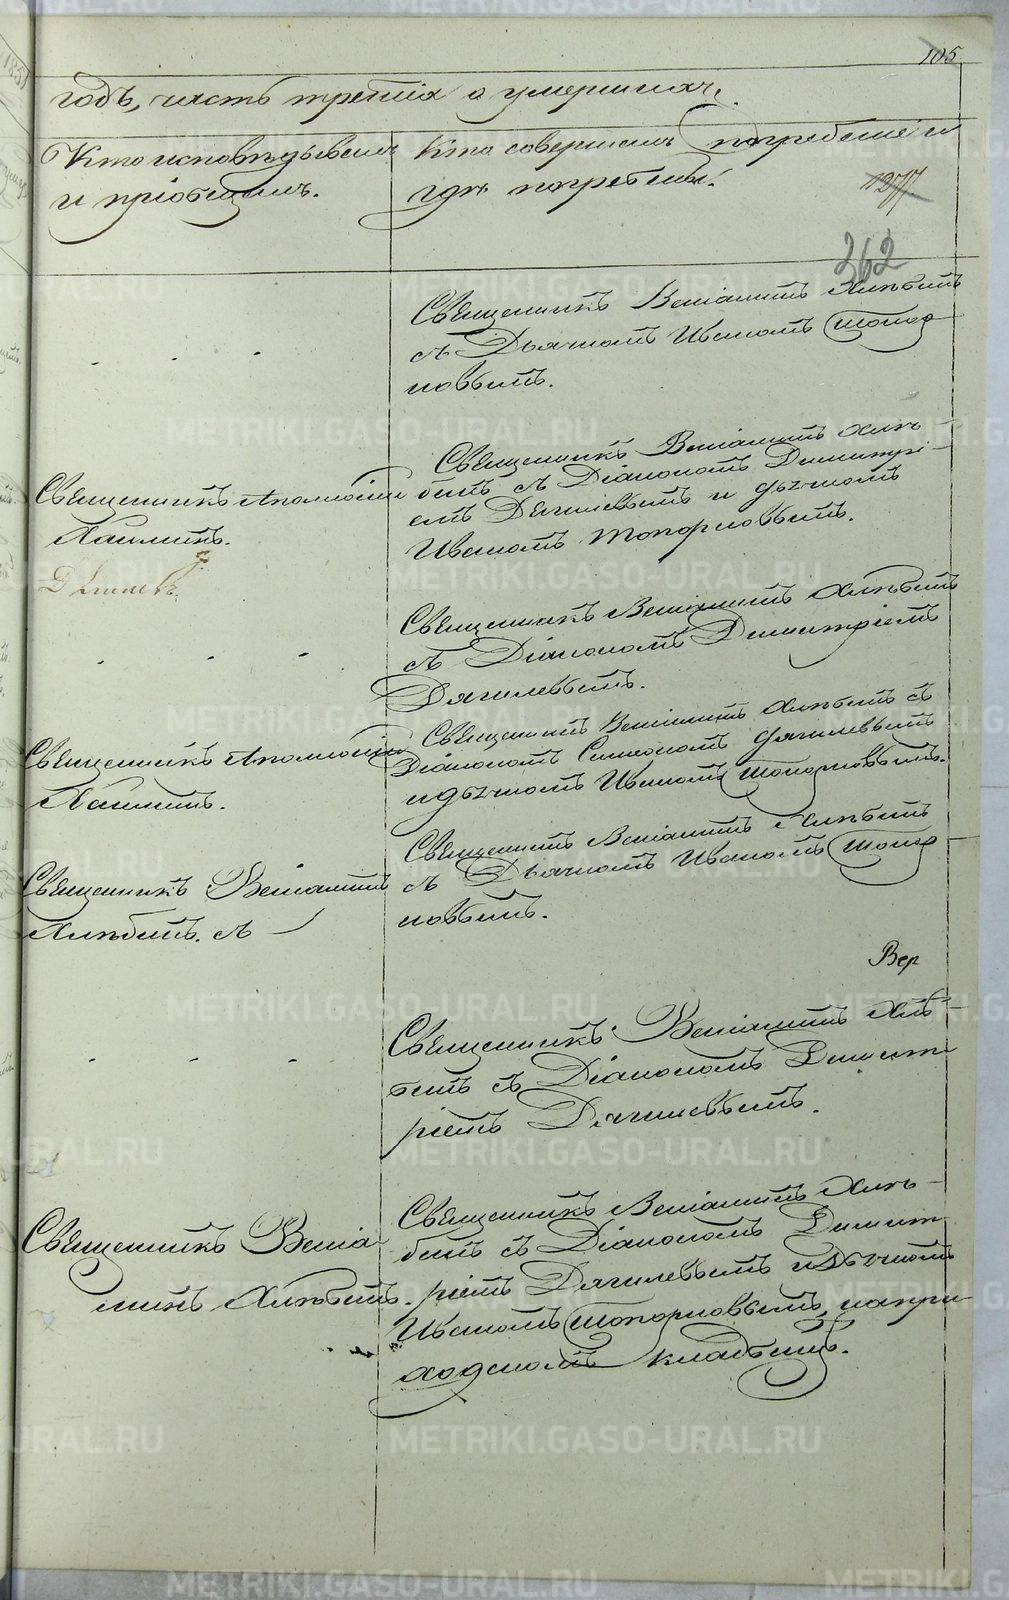 105
годъ, часть третія о умершихъ.
Кто исповѣдывалъ
и пріобщалъ.
Кто совершалъ погребеніе и
гдѣ погребены.
1277
362
Священникъ Веніаминъ Хлѣбинъ
съ Дьячкомъ Иваномъ Топор
новымъ.
Священникъ Аполлоній
Хаминъ.
Священникъ Веніаминъ Хлѣ-
бинъ съ Діакономъ Димитрі-
емъ Дягилевымъ и дьячкомъ
Иваномъ Топорновымъ.
Священникъ Веніаминъ Хлѣбинъ
съ Діакономъ Димитріемъ
Дягилевымъ.
Священникъ Аполлоній
Хаминъ.
Священникъ Веніаминъ Хлѣбинъ съ
Діакономъ Симеономъ Дягилевымъ
и дьячкомъ Иваномъ Топорновымъ.
Священникъ Веніаминъ
Хлѣбинъ. съ
Священникъ Веніаминъ Хлѣбинъ
съ Дьячкомъ Иваномъ Топор
новымъ.
Вер
Священникъ Веніаминъ Хлѣ-
бинъ съ Діакономъ Димит
ріемъ Дягилевымъ.
Священникъ Веніа
минъ Хлѣбинъ.
Священникъ Веніаминъ Хлѣ-
бинъ съ Діакономъ Димит
ріемъ Дягилевымъ и Дьячкомъ
Иваномъ Топорновымъ, на при
ходскомъ кладбищѣ.
METRIKI.GASO-URAL.RU